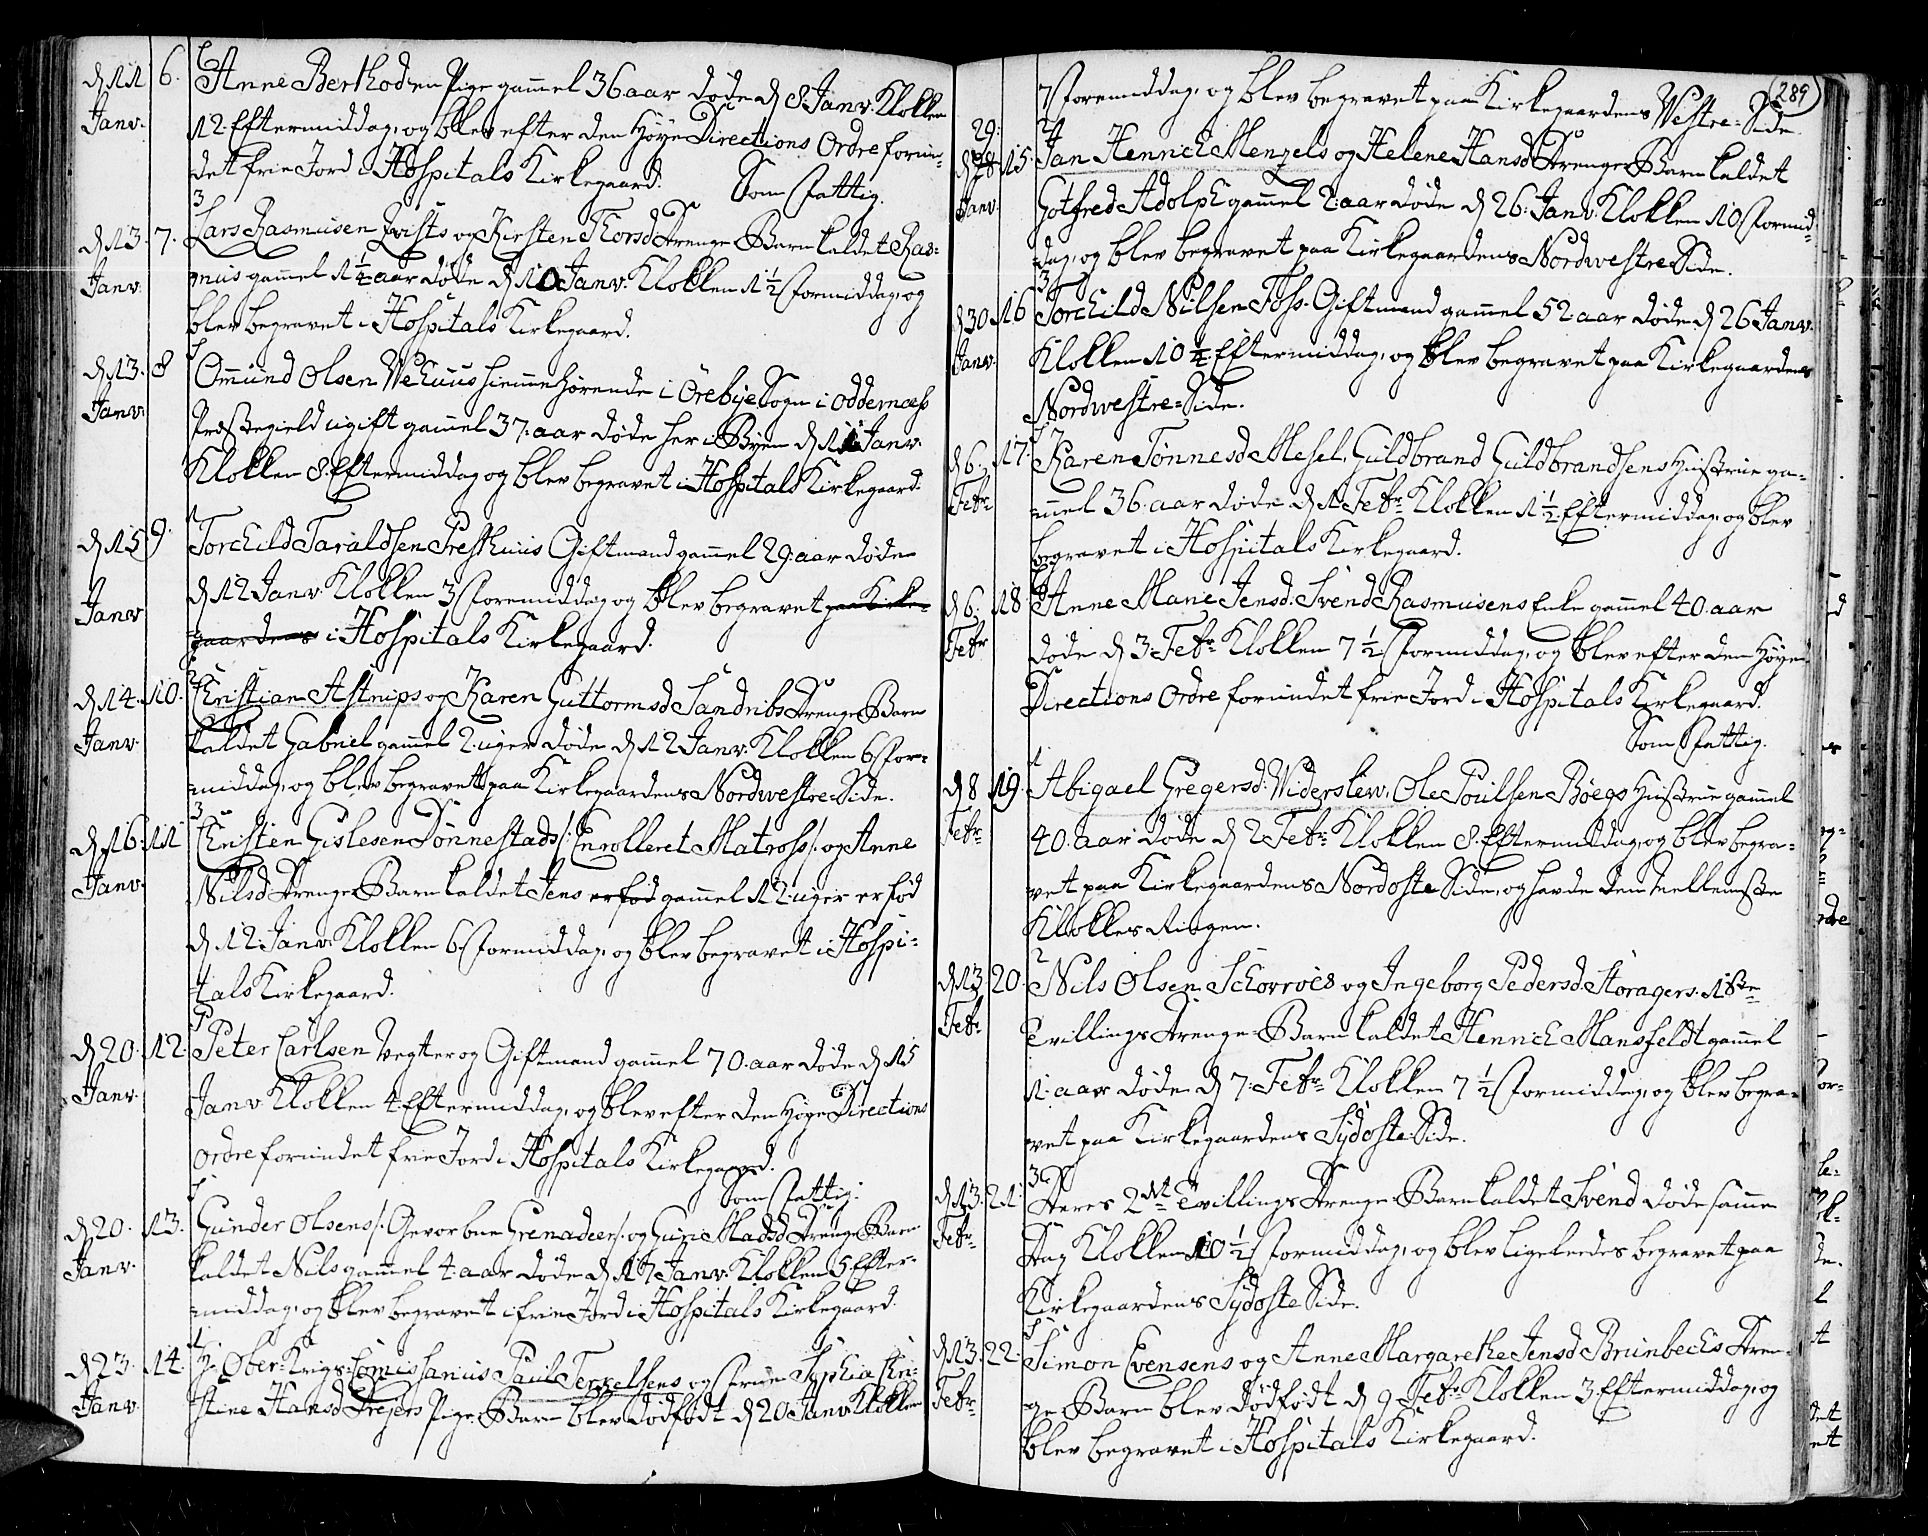 d 11 6. Anne Berthod en Pige gamel 36 aar døde d 8 Janv. Klokken
Janv. 12 Eftermiddag, og blev efter den Høye Directions Ordre forun-
det frie Jord i Hospitals Kirkegaard. Som Fattig.
3
d 13. 7. Lars Rasmusen Qvists og Kirsten Thorsd Drenge Barn kaldet Ras-
Janv mus gamel 1 1/4 aar døde d 10 Janv. Klokken 1 1/2 Formiddag, og
blev begravet i Hospitals Kirkegaard.
d 13. 8 Omund Olsen Wehuus hiemmehørende i Örebye Sogn i Oddernæss
Janv. Præstegield ugift gamel 37. aar døde her i Byen d 11 Janv.
Klokken 8. Eftermiddag og blev begravet i Hospitals Kirkegaard.
d 15 9. Torchild Taraldsen Presthuus Giftmand gamel 29. aar døde
Janv d 12 Janv. Klokken 3 Foremiddag og blev begravet paa Kirke-
gaardens i Hospitals Kirkegaard.
d 14. 10. Christian Astrups og Karen Guttormsd Sandribs Drenge Barn
Janv. kaldet Gabriel gamel 2. uger døde d 12 Janv. Klokken 6 For-
middag, og blev begravet paa Kirkegaardens Nordwestre Side.
3
d 16. 11 Christen Gislesen Dønnestads /: Enrolleret Matross /: og Anne
Janv. Nilsd Drenge Barn kaldet Jens er fød gamel 12. uger er fød
d 12 Janv. Klokken 6 Formiddag, og blev begravet i Hospi-
tals Kirkegaard.
d 20. 12. Peter Carlsen Vegter og Giftmand gamel 70. aar døde d 15
Janv. Janv Klokken 4 Eftermiddag, og blev efter den Høye Directions
Ordre forundet frie Jord i Hospitals Kirkegaard.
Som Fattig.
d 20. 13. Gunder Olsens /: Gevorben Grenadeer /: og Guri Madsd Drenge Barn
Janv. kaldet Nils gamel 4. aar døde d 17 Janv. Klokken 5 Efter-
middag, og blev begravet i frie Jord i Hospitals Kirkegaard.
d 23. 14. Hr Ober-Krigs Comissarius Paul Terkelsens og Frue Sophia Chri-
Janv. stine Hansd Dreyers Pige Barn blev dødfødt d 20 Janv Klokken
289
7 Foremiddag, og blev begravet paa Kirkegaardens Westre-Side.
29.
d 28 15. Jan Henrich Menzels og Helene Hansd Drenge Barn kaldet
Janv. Gotfred Adolph gamel 2. aar døde d 26. Janv. Klokken 10 Formid-
dag, og blev begravet paa Kirkegaardens Nordwestre Side.
3
d 30 16 Torchild Nilsen Foss. Giftmand gamel 52. aar døde d 26 Janv.
Janv. Klokken 10 1/4 Eftermiddag, og blev begravet paa Kirkegaardens
Nordwestre-Side.
d 6. 17. Karen Tønnesd Mesel, Guldbrand Guldbrandsens Hustrue ga-
Febr. mel 36. aar døde d 1 Febr. Klokken 1 1/2 Eftermiddag, og blev
begravet i Hospitals Kirkegaard.
d 6. 18 Anne Marie Jensd. Svend Rasmusens Enke gamel 40. aar
Febr døde d 3 Febr. Klokken 7 1/2 Formiddag, og blev efter den Høye
Directions Ordre forundet frie Jord i Hospitals Kirkegaard.
Som Fattig.
d 8 19. Abigael Gregersd. Widerslew, Ole Poulsen Bøegs Hustrue gamel
Febr. 40. aar døde d 2 Febr. Klokken 8. Eftermiddag, og blev begra-
vet paa Kirkegaardens Nordoste Side, og havde den mellemste
Klokkes Ringen.
2
d 13 20. Nils Olsen Schovroes og Ingeborg Pedersd Storagers. 1ste
Febr. Tvillings Drenge Barn kaldet Henrich Mansfeldt gamel
1. aar døde d 7. Febr. Klokken 7 1/2 Formiddag, og blev begra-
vet paa Kirkegaardens Sydoste Side.
3
d 13. 21. Deres 2det Tvillings Drenge Barn kaldet Svend døde samme
Febr. Dag Klokken 10 1/2 Formiddag, og blev ligeledes begravet paa
Kirkegaardens Sydoste Side.
d 13. 22. Simon Evensens og Anne Margarethe Jensd Brunbechs Dren-
Febr. ge Barn blev dødfødt d 9 Febr. Klokken 3 Eftermiddag, og
blev begravet i Hospitals Kirkegaard.